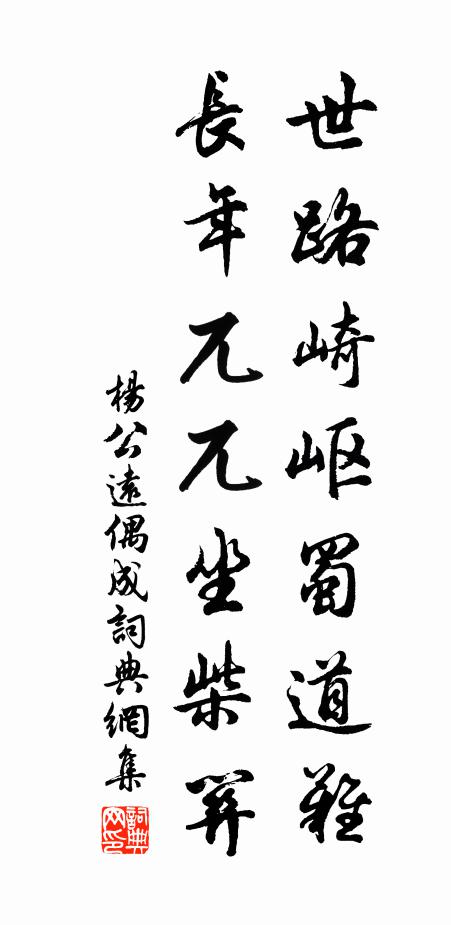 世路崎岖蜀道難
長年兀兀坐柴關
楊公遠偶成詞典網集
詞典网印